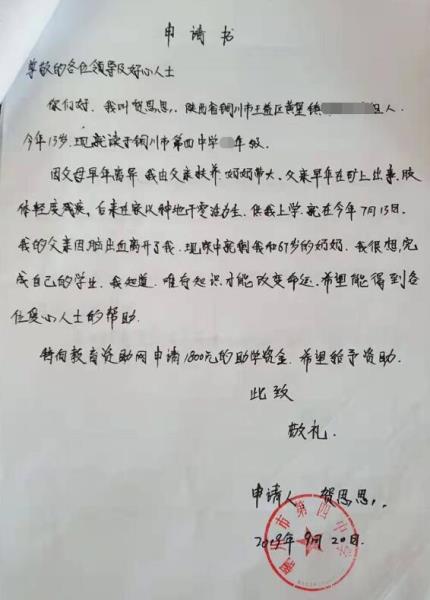 申请书
尊敬的各位领导及好心人士
你们好,我叫贺思思,陕西省铜川市王益区黄堡镇 组人
今年13岁,现就读于铜川市第四中学 年级
因父母早年离异 我由父亲扶养 奶奶带大,父亲早年在矿上出事,肢
体轻度残疾,后来在家以种地干零活为生,供我上学,就在今年7月13日,
我的父亲因脑出血离开了我,现家中就剩我和67岁的奶奶,我很想,完
成自己的学业,我知道,唯有知识才能改变命运,希望能得到各
位爱心人士的帮助.
特向教育资助网申请1800元的助学资金,希望给予资助.
此致
敬礼.
申请人 贺思思,.
市第四中
2019年9月20日.